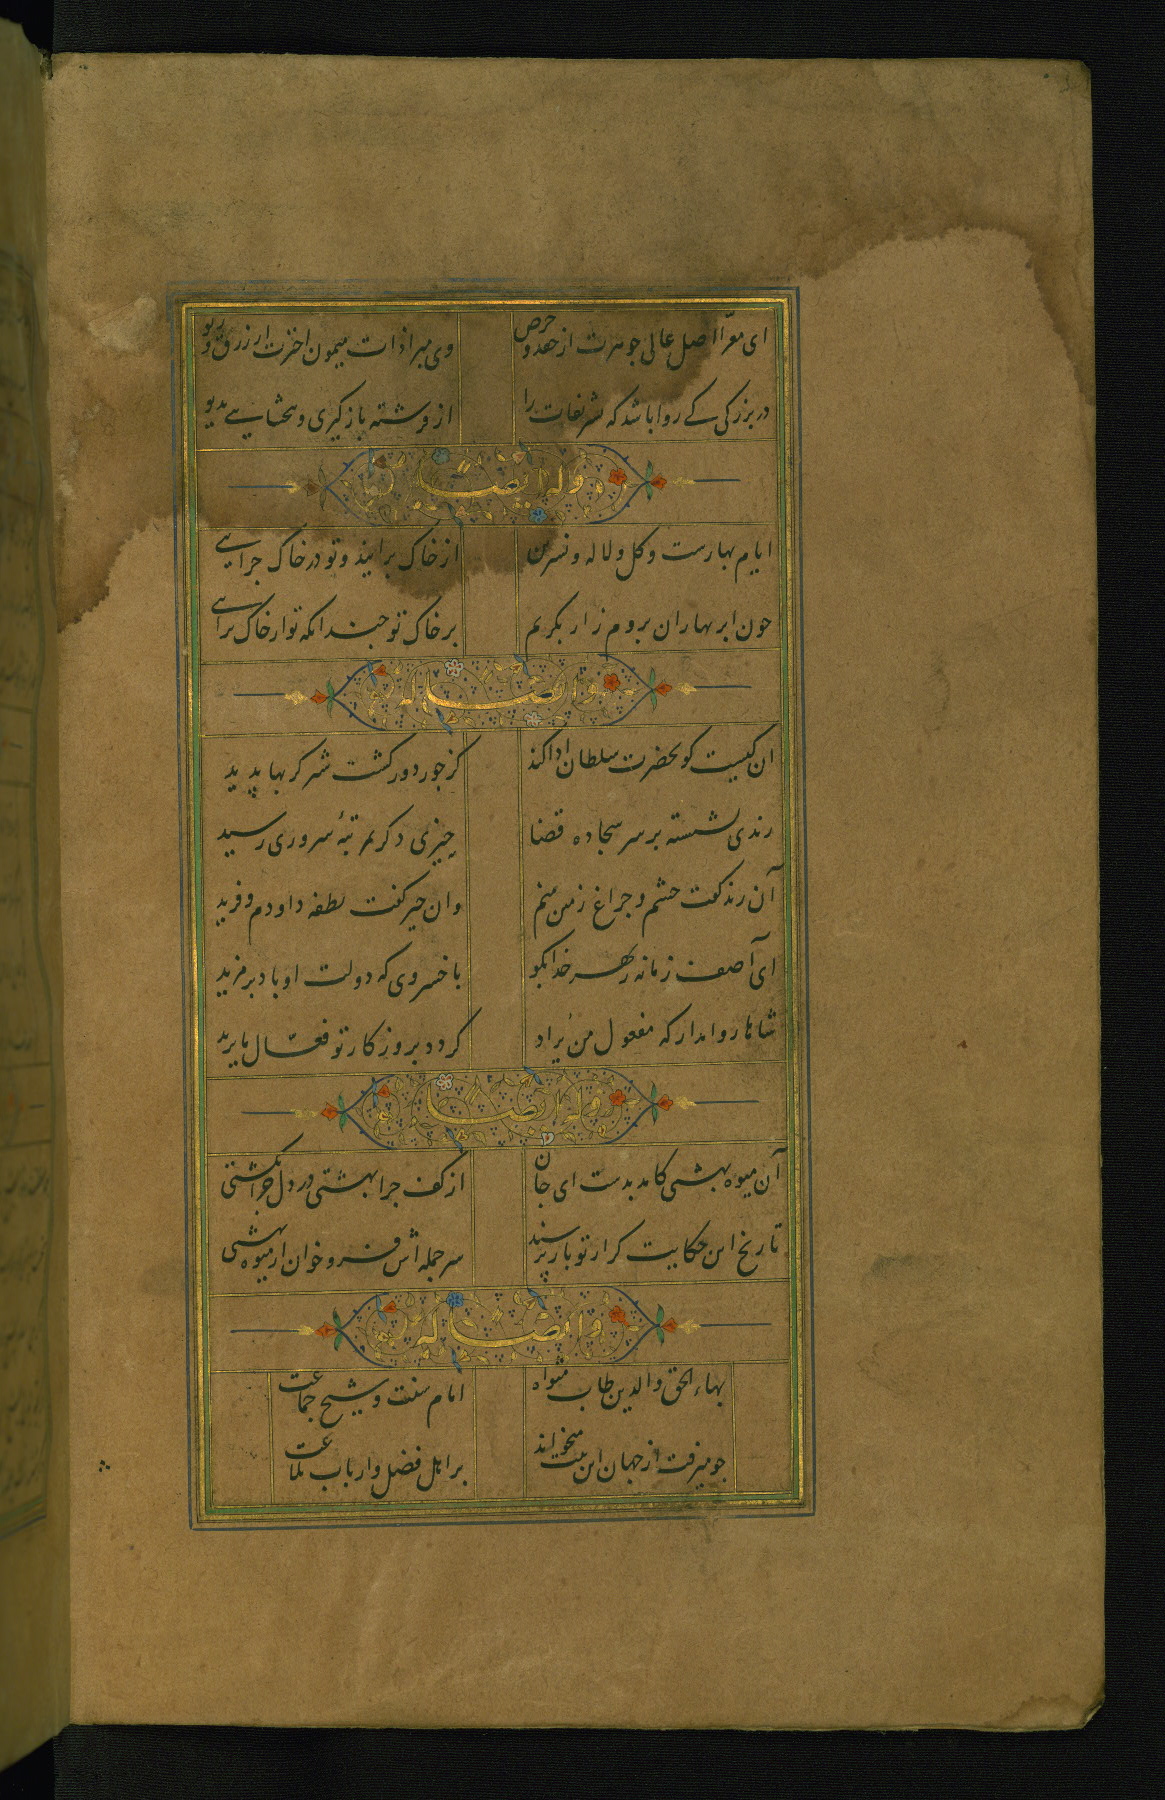 ای معرّا اصل عالی جوهرت از حقد و حرص
وی مبرا ذات میمون اخترت از زرق و ریو
در بزرگی کے روا باشد که تشریفات را
از فرشته بازگیری و بخشایے بدیو
وله ایضا
ایام بهارست و کل و لاله و نسرین
از خاک برایند و تو در خاک جرایے
جون ابر بهاران بروم زار بکریم
بر خاک تو جندانکه تو از خاک برایے
وایضا له
ان کیست کو بحضرت سلطان ادا کند
کز جور دور کشت شتر کربها پدید
رندی نشسته بر سر سجاده قضا
حیزی دکر بمرتبهٔ سروری رسید
آن رند کفت جشم و جراغ زمن منم
وان حیز کفت نطفه داودم و فرید
ای آصف زمانه ز بهر خدا بکو
با خسروی که دولت او باد بر مزید
شاها روا مدار که مفعول من یراد
کردد بروزکار تو فعّال ما یرید
وله ایضا
آن میوه بهشتی کامد بدست ای جان
از کف جرا بهشتی در دل جرا نکشتی
تاریخ این حکایت کر از تو باز پرسند
سر جمله اش فرو خوان از میوه بهشتی
وایضا له
بهاء الحق والدین طاب مثواه
امام سنت و شیخ جماعت
جو میرفت از جهان این بیت میخواند
بر اهل فضل و ارباب بلاعت